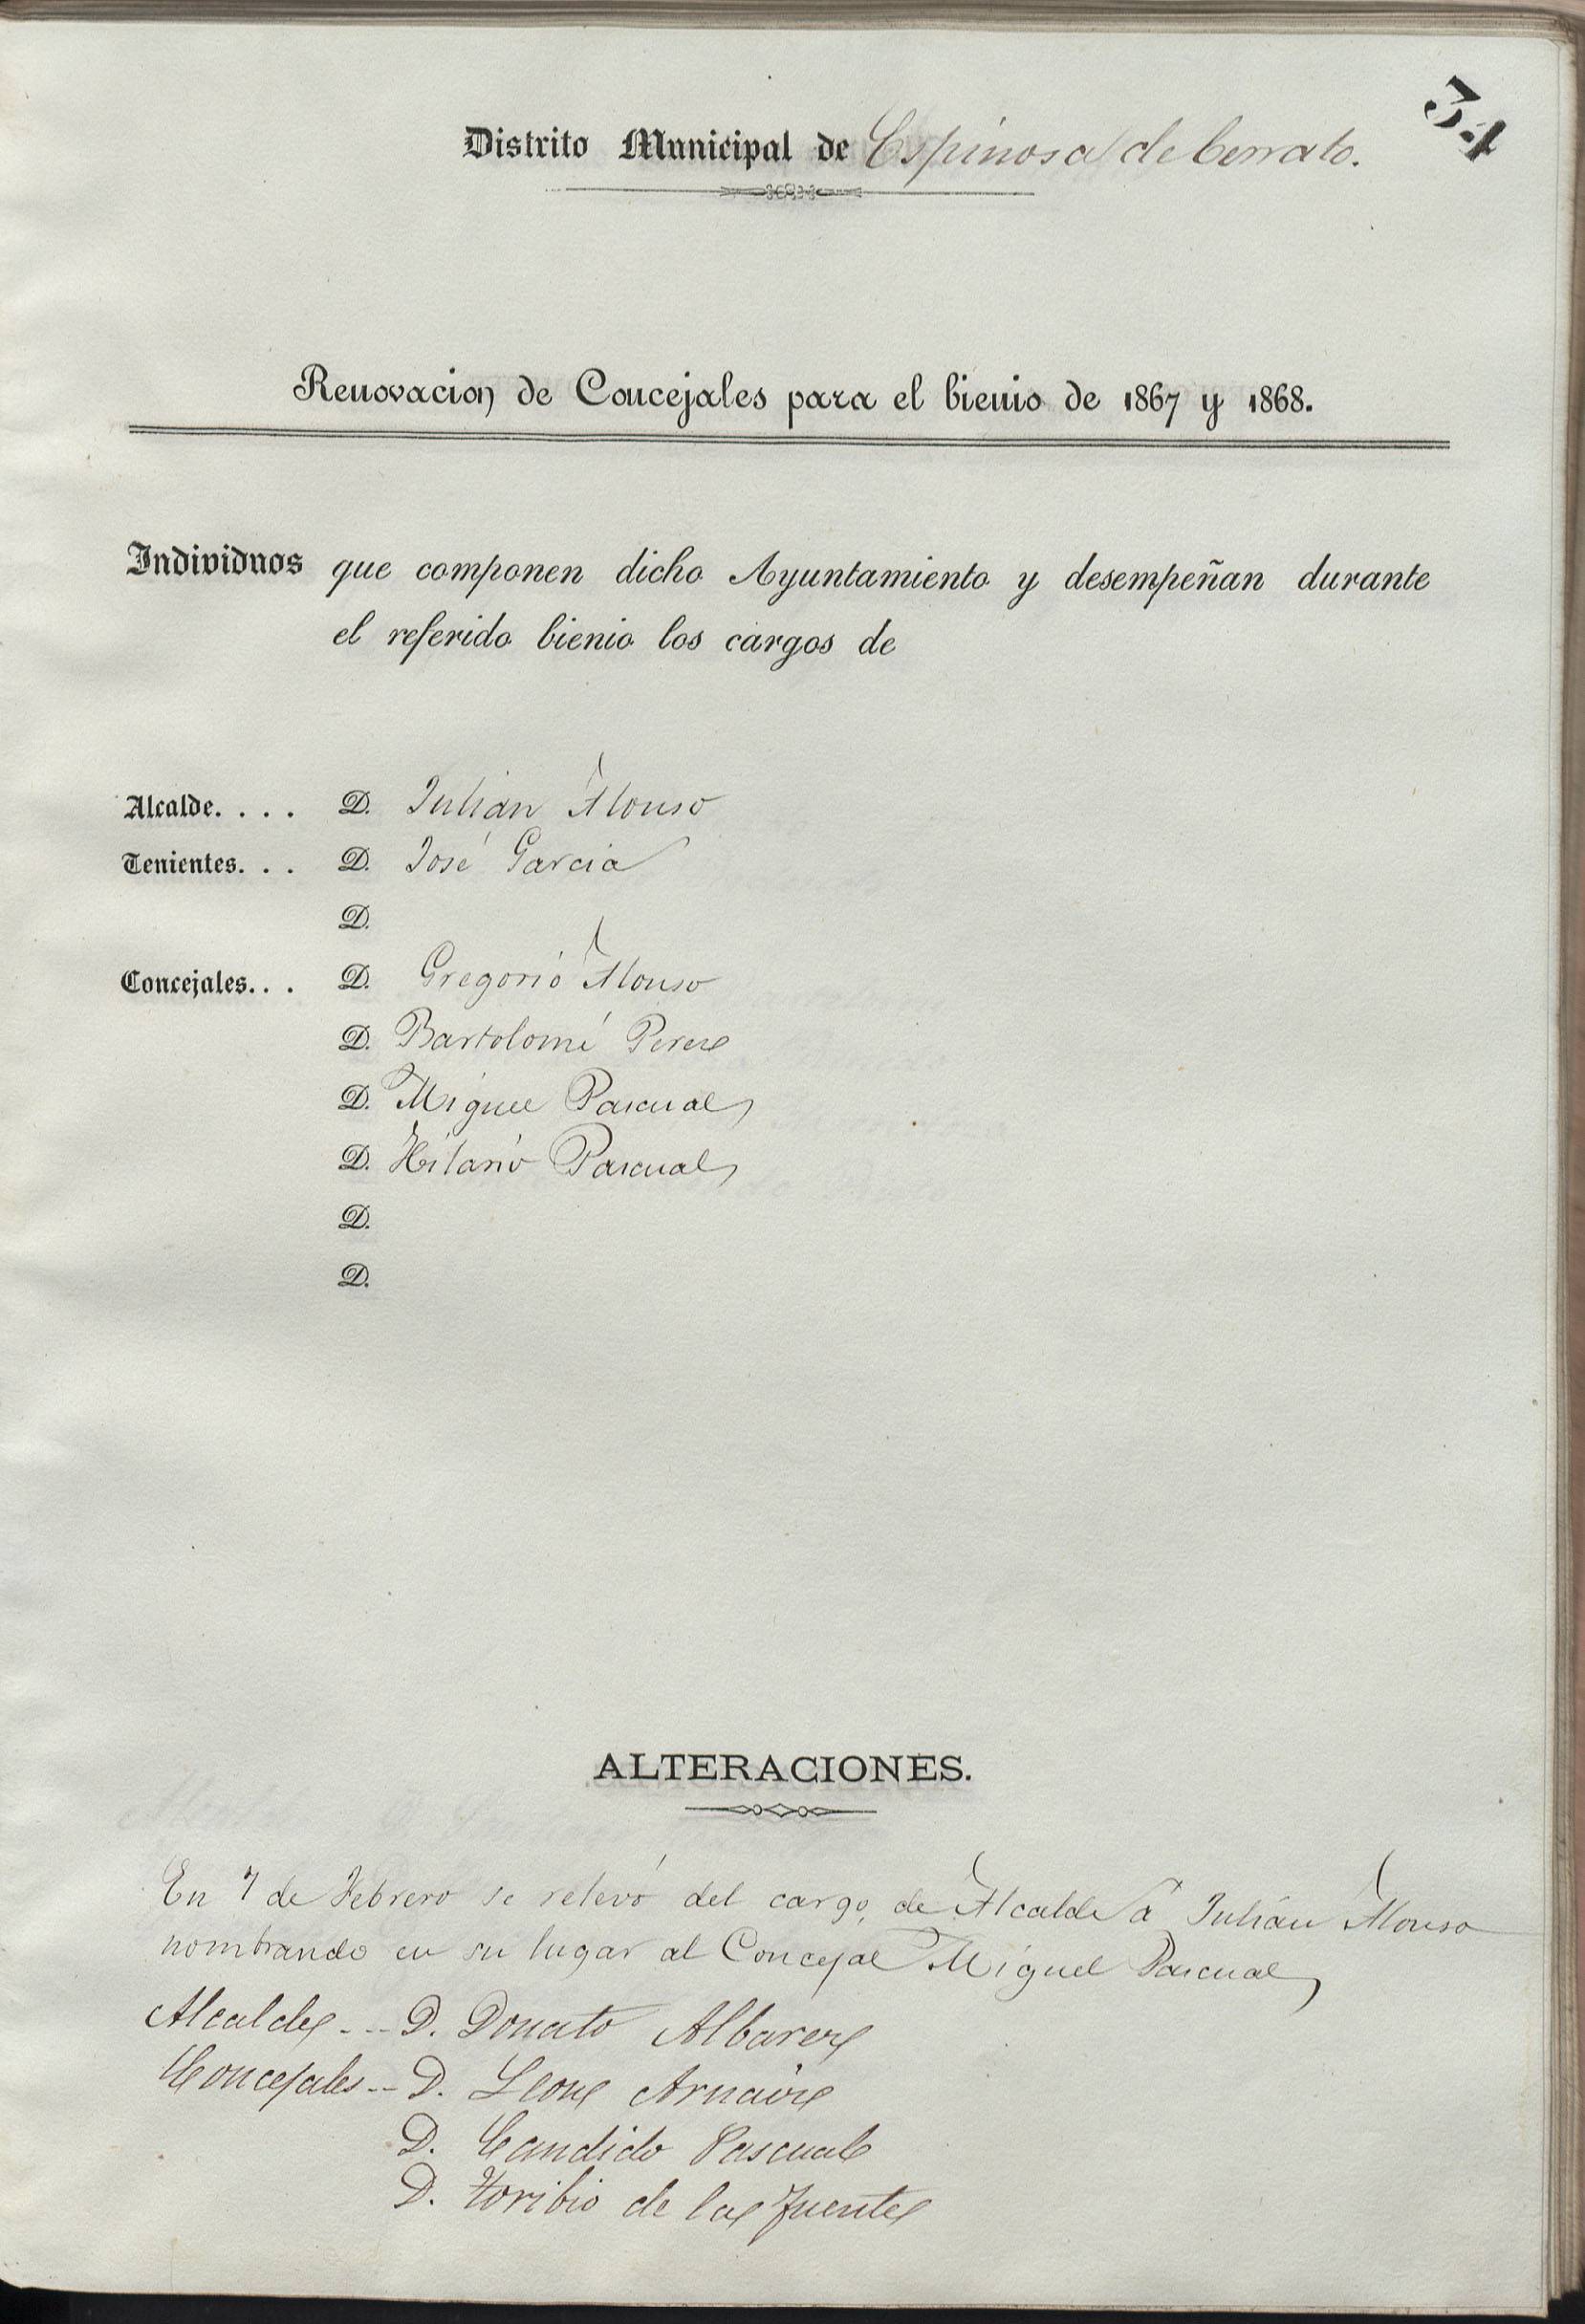 34
Distrito Municipal de Espinosa de Cerrato.
Renovacion de Concejales para el bienio de 1867 y 1868.
Individuos que componen dicho Ayuntamiento y desempeñan durante
el referido bienio los cargos de
Alcalde. . . . D. Julián Alonso
Tenientes. . . D. José Garcia
D.
Concejales. . . D. Gregorio Alonso
D. Bartolomé Perez
D. Miguel Pascual
D. Hilario Pascual
D.
D.
ALTERACIONES.
En 7 de Febrero se relevó del cargo de Alcalde á Julián Alonso
nombrando en su lugar al Concejal Miguel Pascual
Alcalde - - - D. Donato Albarez
Concejales - - D. Leon Arnaiz
D. Candido Pascual
D. Toribio de la Fuente